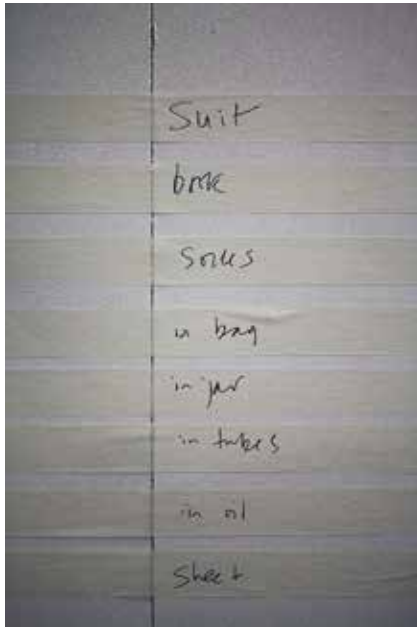 Suit
book
Socks
in bag
in jar
in tubes
in oil
Sheet